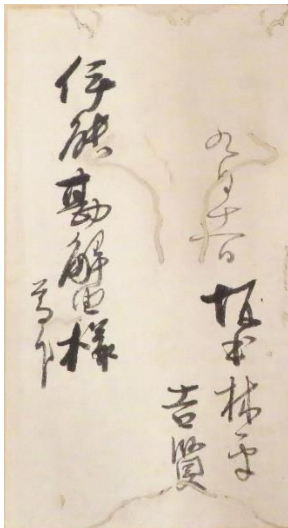 九月
坂本林平
吉賢
伊能勘解由様
尊下